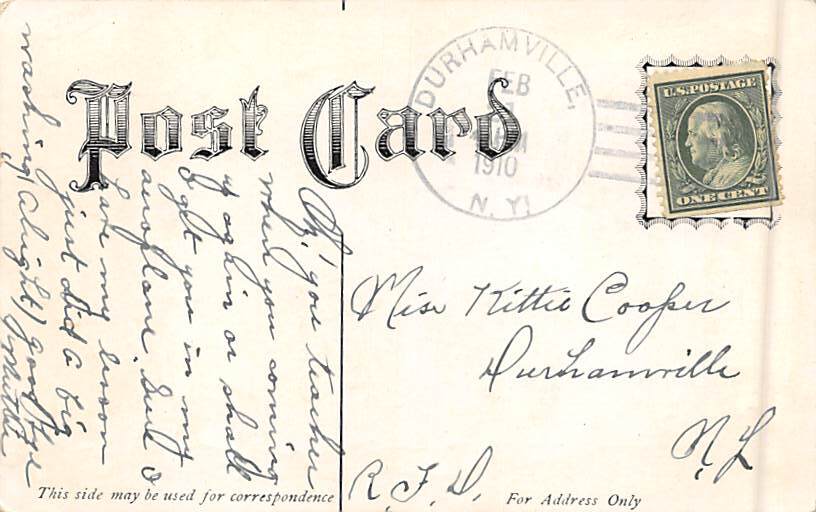 Post Card
DURHAMVILLE,
FEB
1
PM
1910
N. Y.
U.S. POSTAGE
ONE CENT
Oh, you teacher
when you coming
up again or shall
I get you in my
aeroplane. Sure I
have my lesson
just did a big
washing (alright) good bye
Myrtle
Miss Kittie Cooper
Durhamville
N.Y.
R.F.D.
This side may be used for correspondence
For Address Only